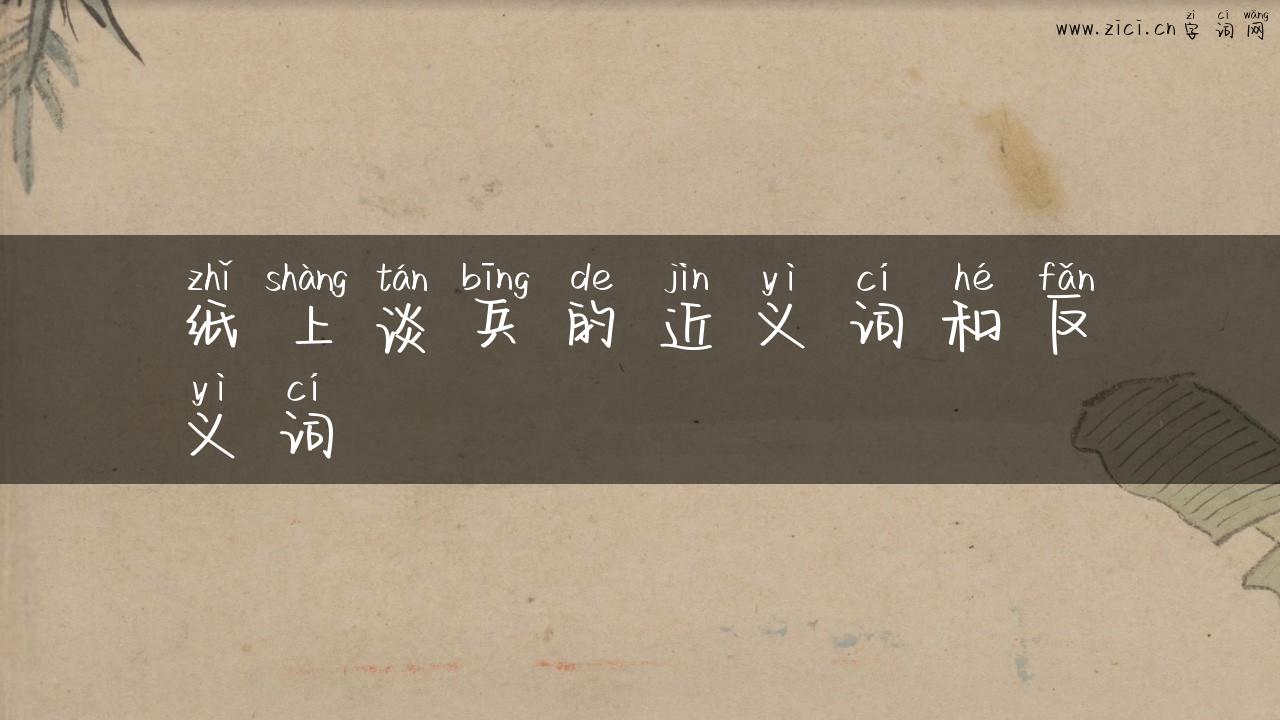 zì cí wǎng
www.zici.cn 字 词 网
zhǐ shàng tán bīng de jìn yì cí hé fǎn
纸 上 谈 兵 的 近 义 词 和 反
yì cí
义 词